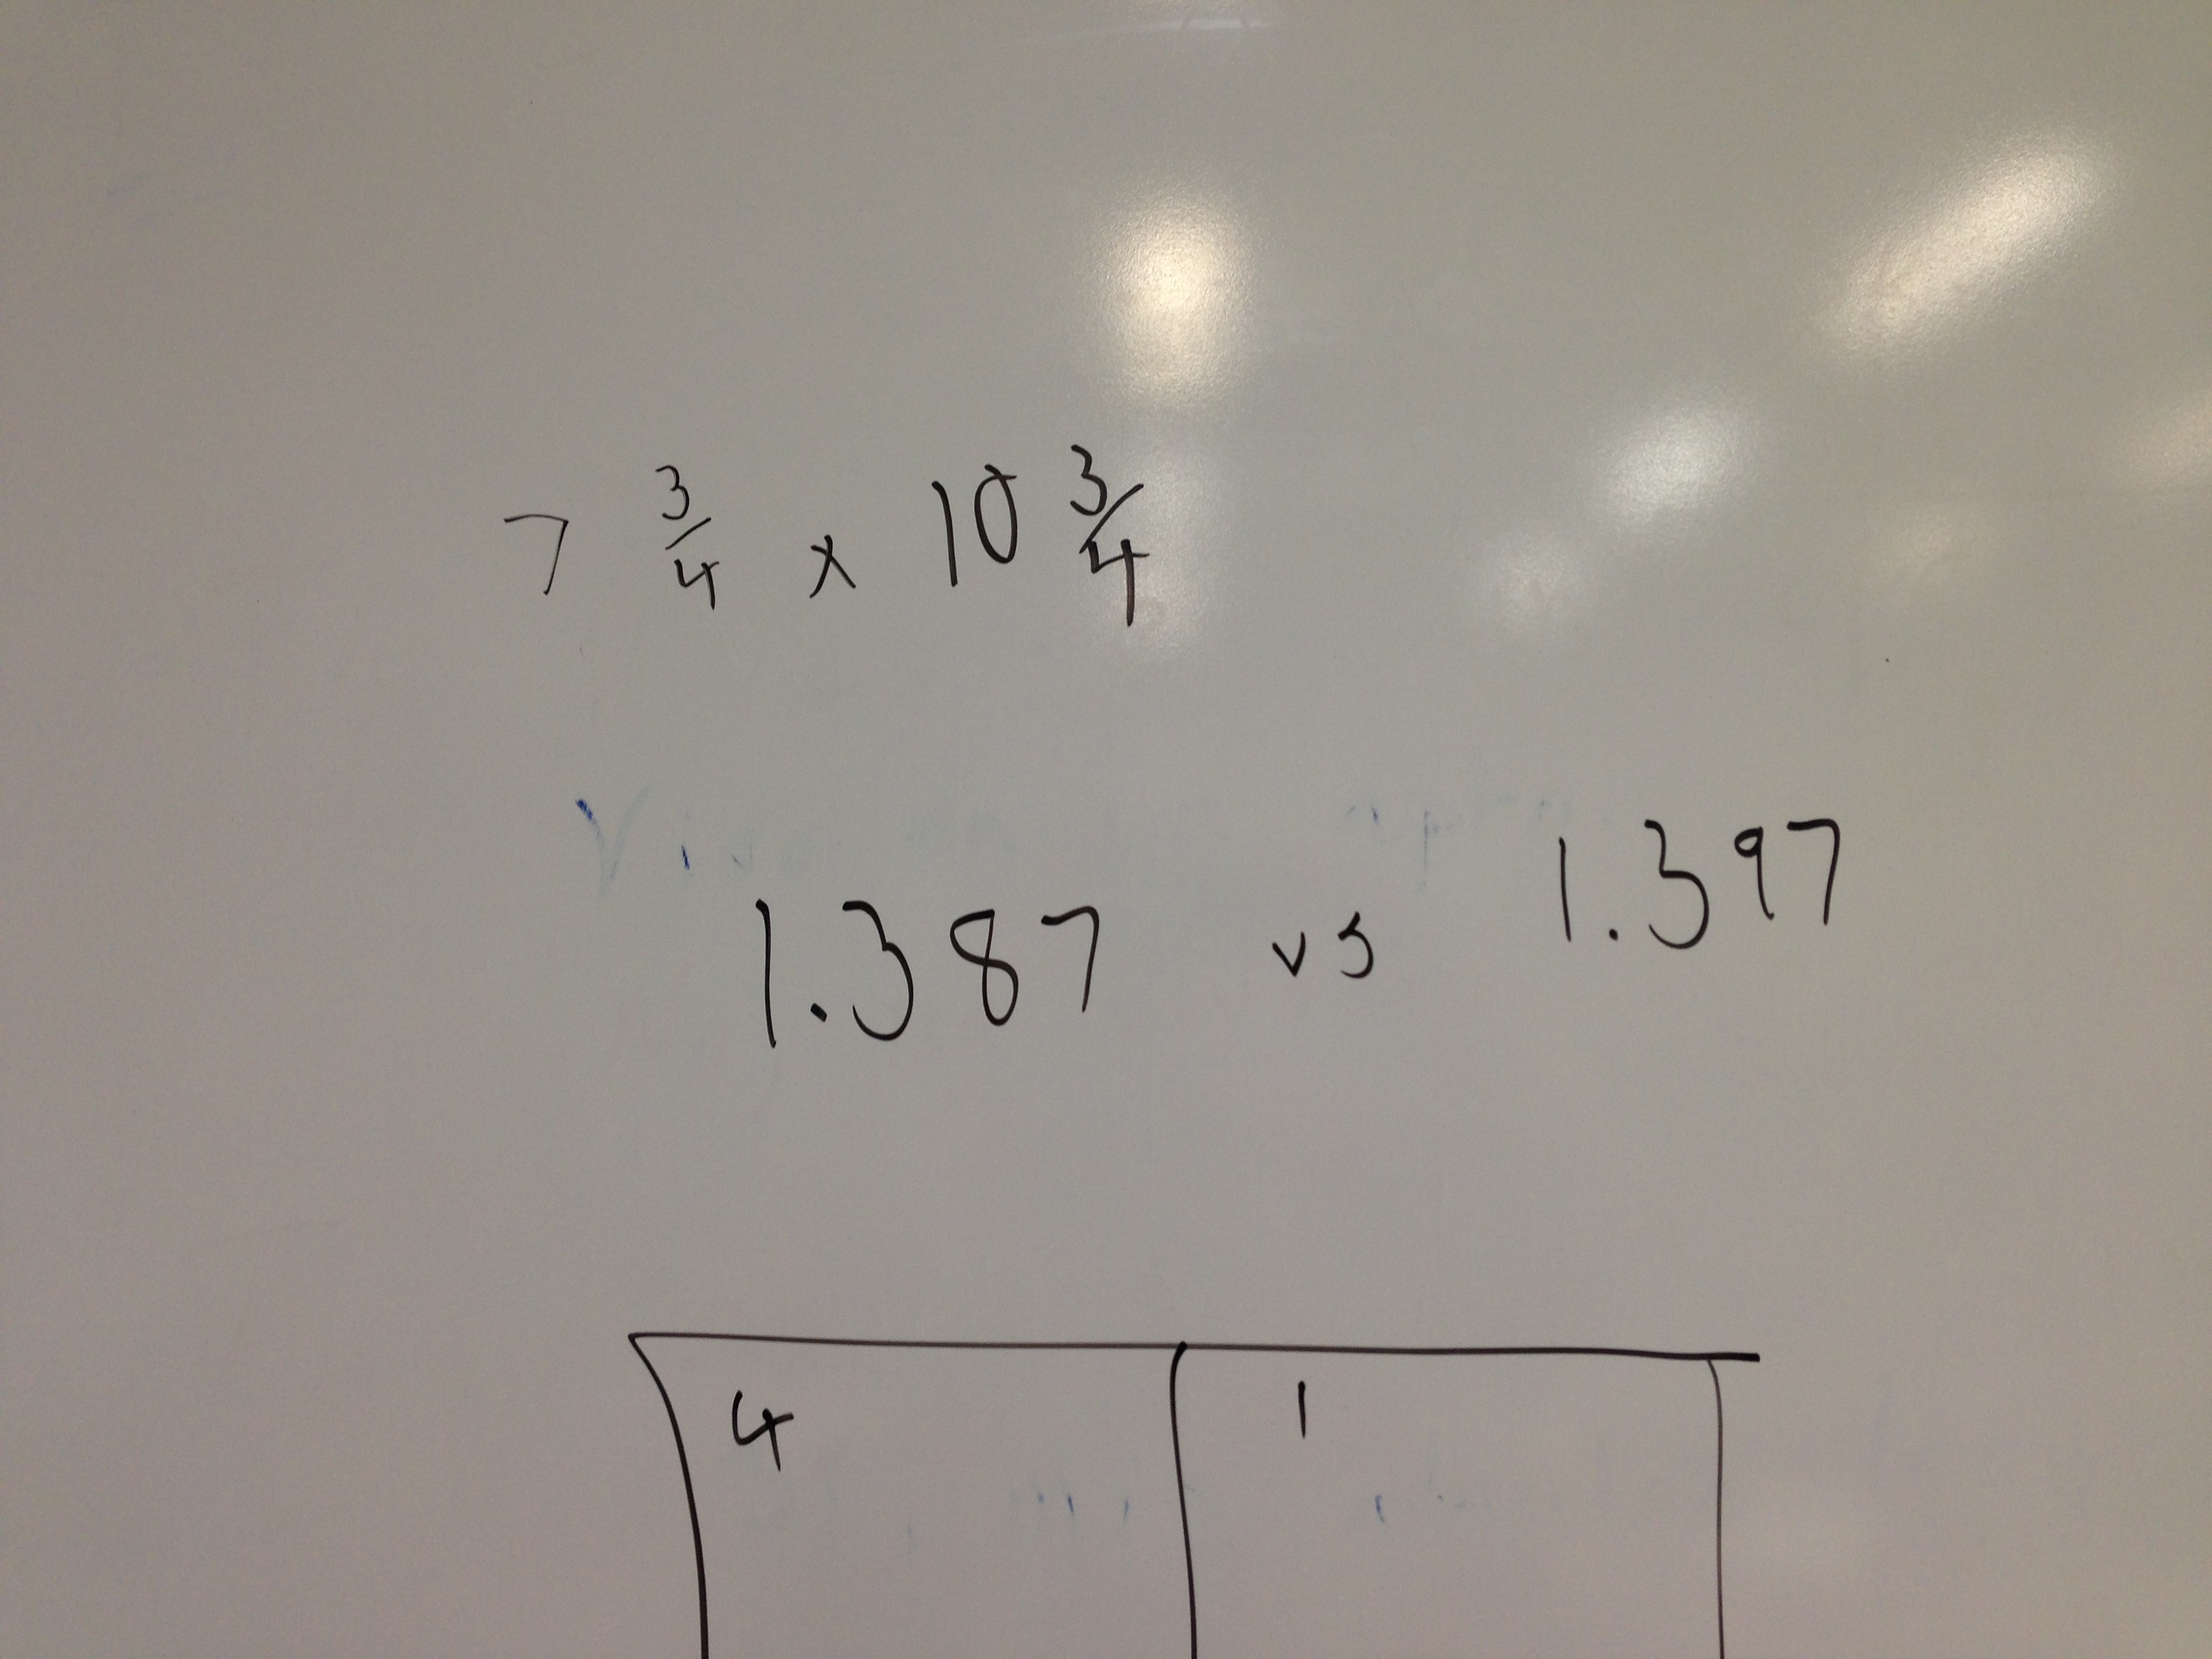 7 3/4 x 10 3/4
1.387 vs 1.397
4 1